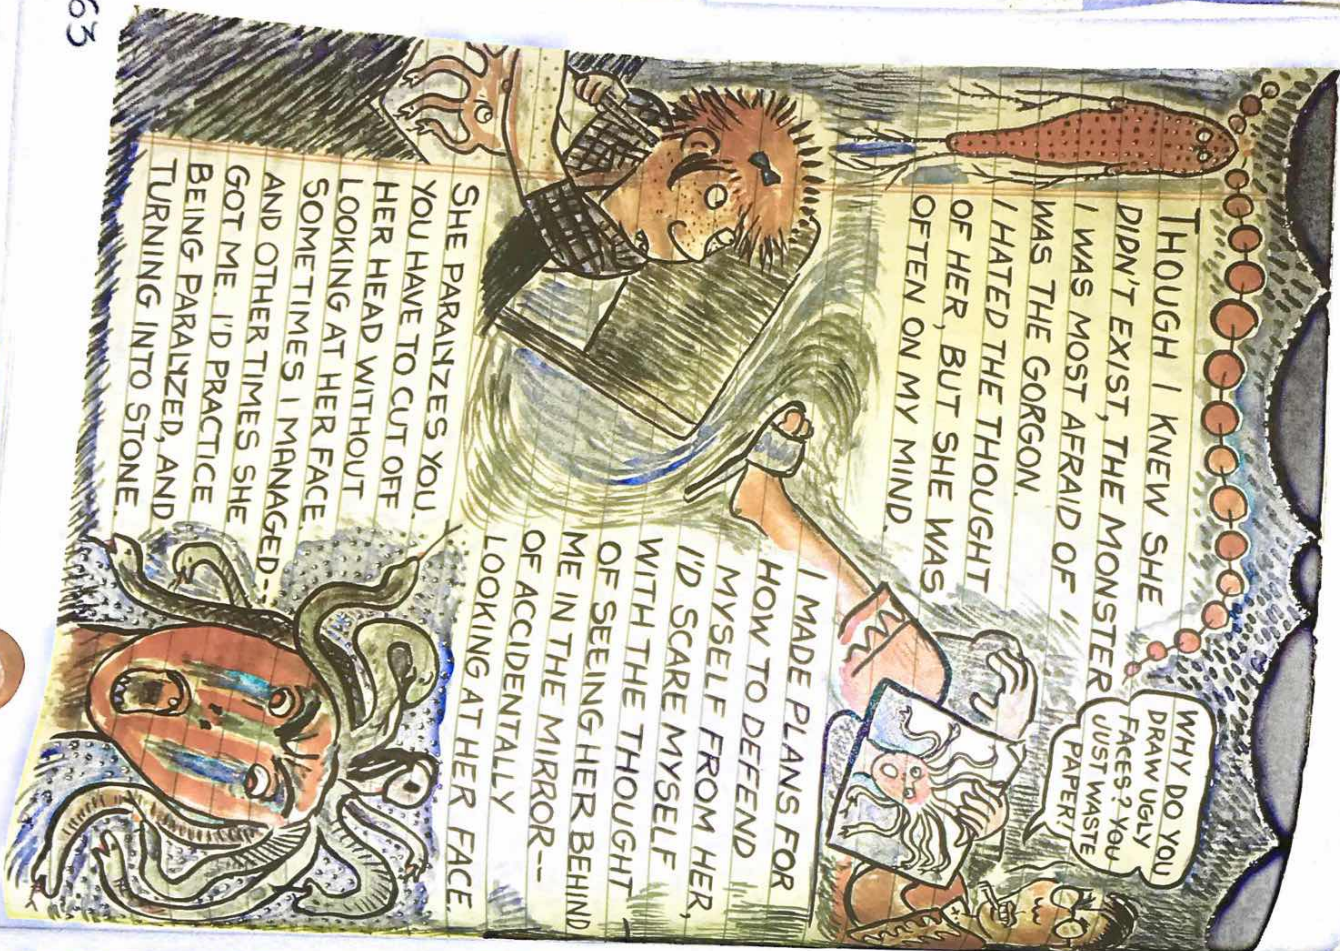 THOUGH I KNEW SHE
DIDN'T EXIST, THE MONSTER
I WAS MOST AFRAID OF
WAS THE GORGON.
I HATED THE THOUGHT
OF HER, BUT SHE WAS
OFTEN ON MY MIND.
WHY DO YOU
DRAW UGLY
FACES? YOU
JUST WASTE
PAPER!
I MADE PLANS FOR
HOW TO DEFEND
MYSELF FROM HER,
I'D SCARE MYSELF
WITH THE THOUGHT
OF SEEING HER BEHIND
ME IN THE MIRROR--
OF ACCIDENTALLY
LOOKING AT HER FACE.
SHE PARALYZES YOU.
YOU HAVE TO CUT OFF
HER HEAD WITHOUT
LOOKING AT HER FACE.
SOMETIMES I MANAGED-
AND OTHER TIMES SHE
GOT ME. I'D PRACTICE
BEING PARALYZED, AND
TURNING INTO STONE.
63